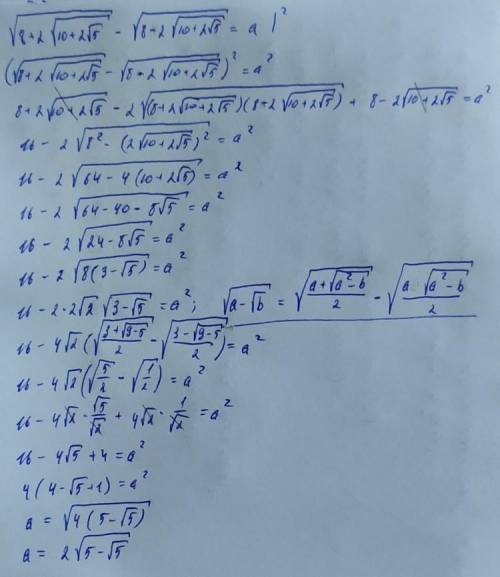 √(8+2√(10+2√5)) - √(8+2√(10+2√5)) = a |²
(√(8+2√(10+2√5)) - √(8+2√(10+2√5)))² = a²
8+2√(10+2√5) - 2√((8+2√(10+2√5))(8+2√(10+2√5))) + 8-2√(10+2√5) = a²
16 - 2√(8² - (2√(10+2√5))²) = a²
16 - 2√(64 - 4(10+2√5)) = a²
16 - 2√(64-40-8√5) = a²
16 - 2√(24-8√5) = a²
16 - 2√(8(3-√5)) = a²
16 - 2·2√2 √(3-√5) = a² ; √(a-√b) = √((a+√(a²-b))/2) - √((a √(a²-b))/2)
16 - 4√2 (√((3+√(9-5))/2) - √((3-√(9-5))/2)) = a²
16 - 4√2 (√(5/2) - √(1/2)) = a²
16 - 4√2 · √5/√2 + 4√2 · 1/√2 = a²
16 - 4√5 + 4 = a²
4(4-√5+1) = a²
a = √(4(5-√5))
a = 2√(5-√5)